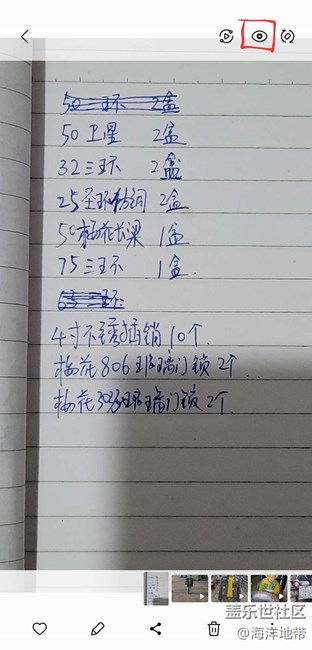 50三环 2盒
50卫星 2盒
32三环 2盒
25 2盒
50梅花长梁 1盒
75三环 1盒.
63三环
4寸不锈插销10个.
梅花806球瑞门锁2个..
梅花 球瑞门锁2个.
盖乐世社区
@海洋地带